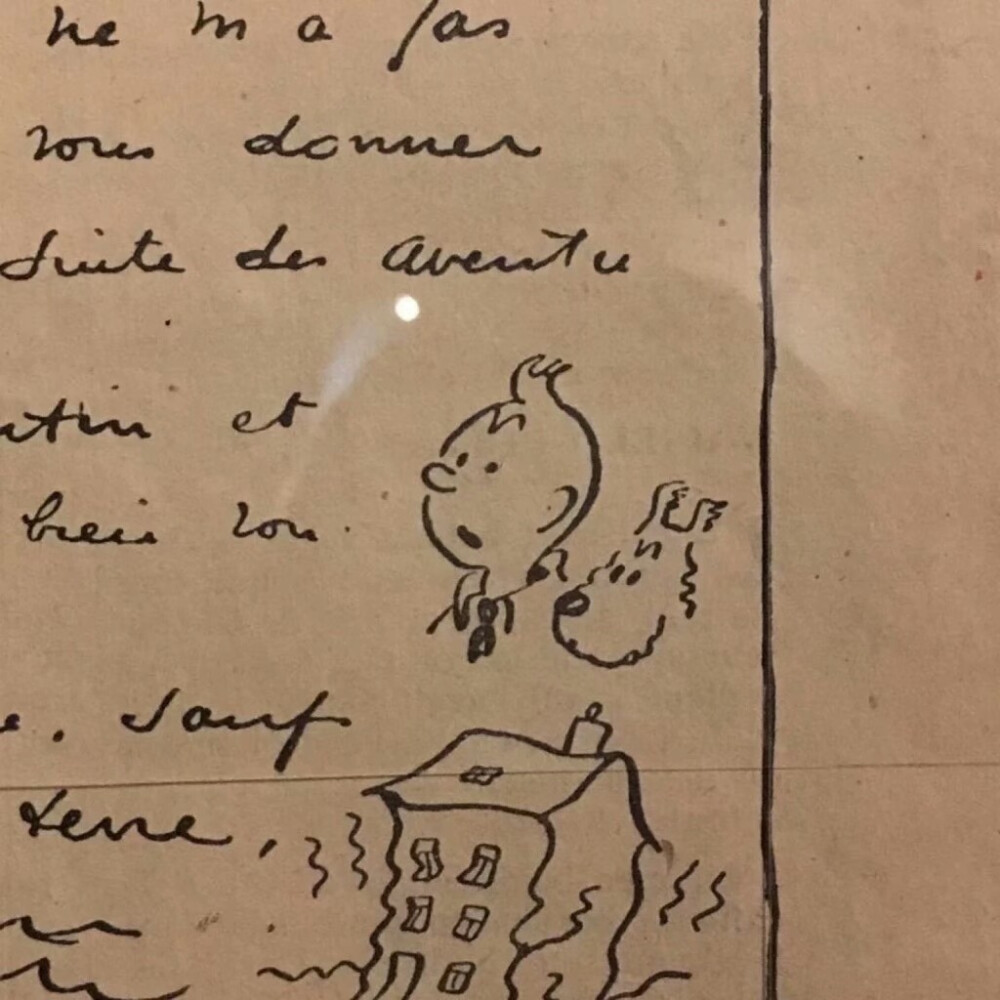 ne m'a pas
vous donner
suite des aventu
ntin et
bien vou
e. Sauf
terre,